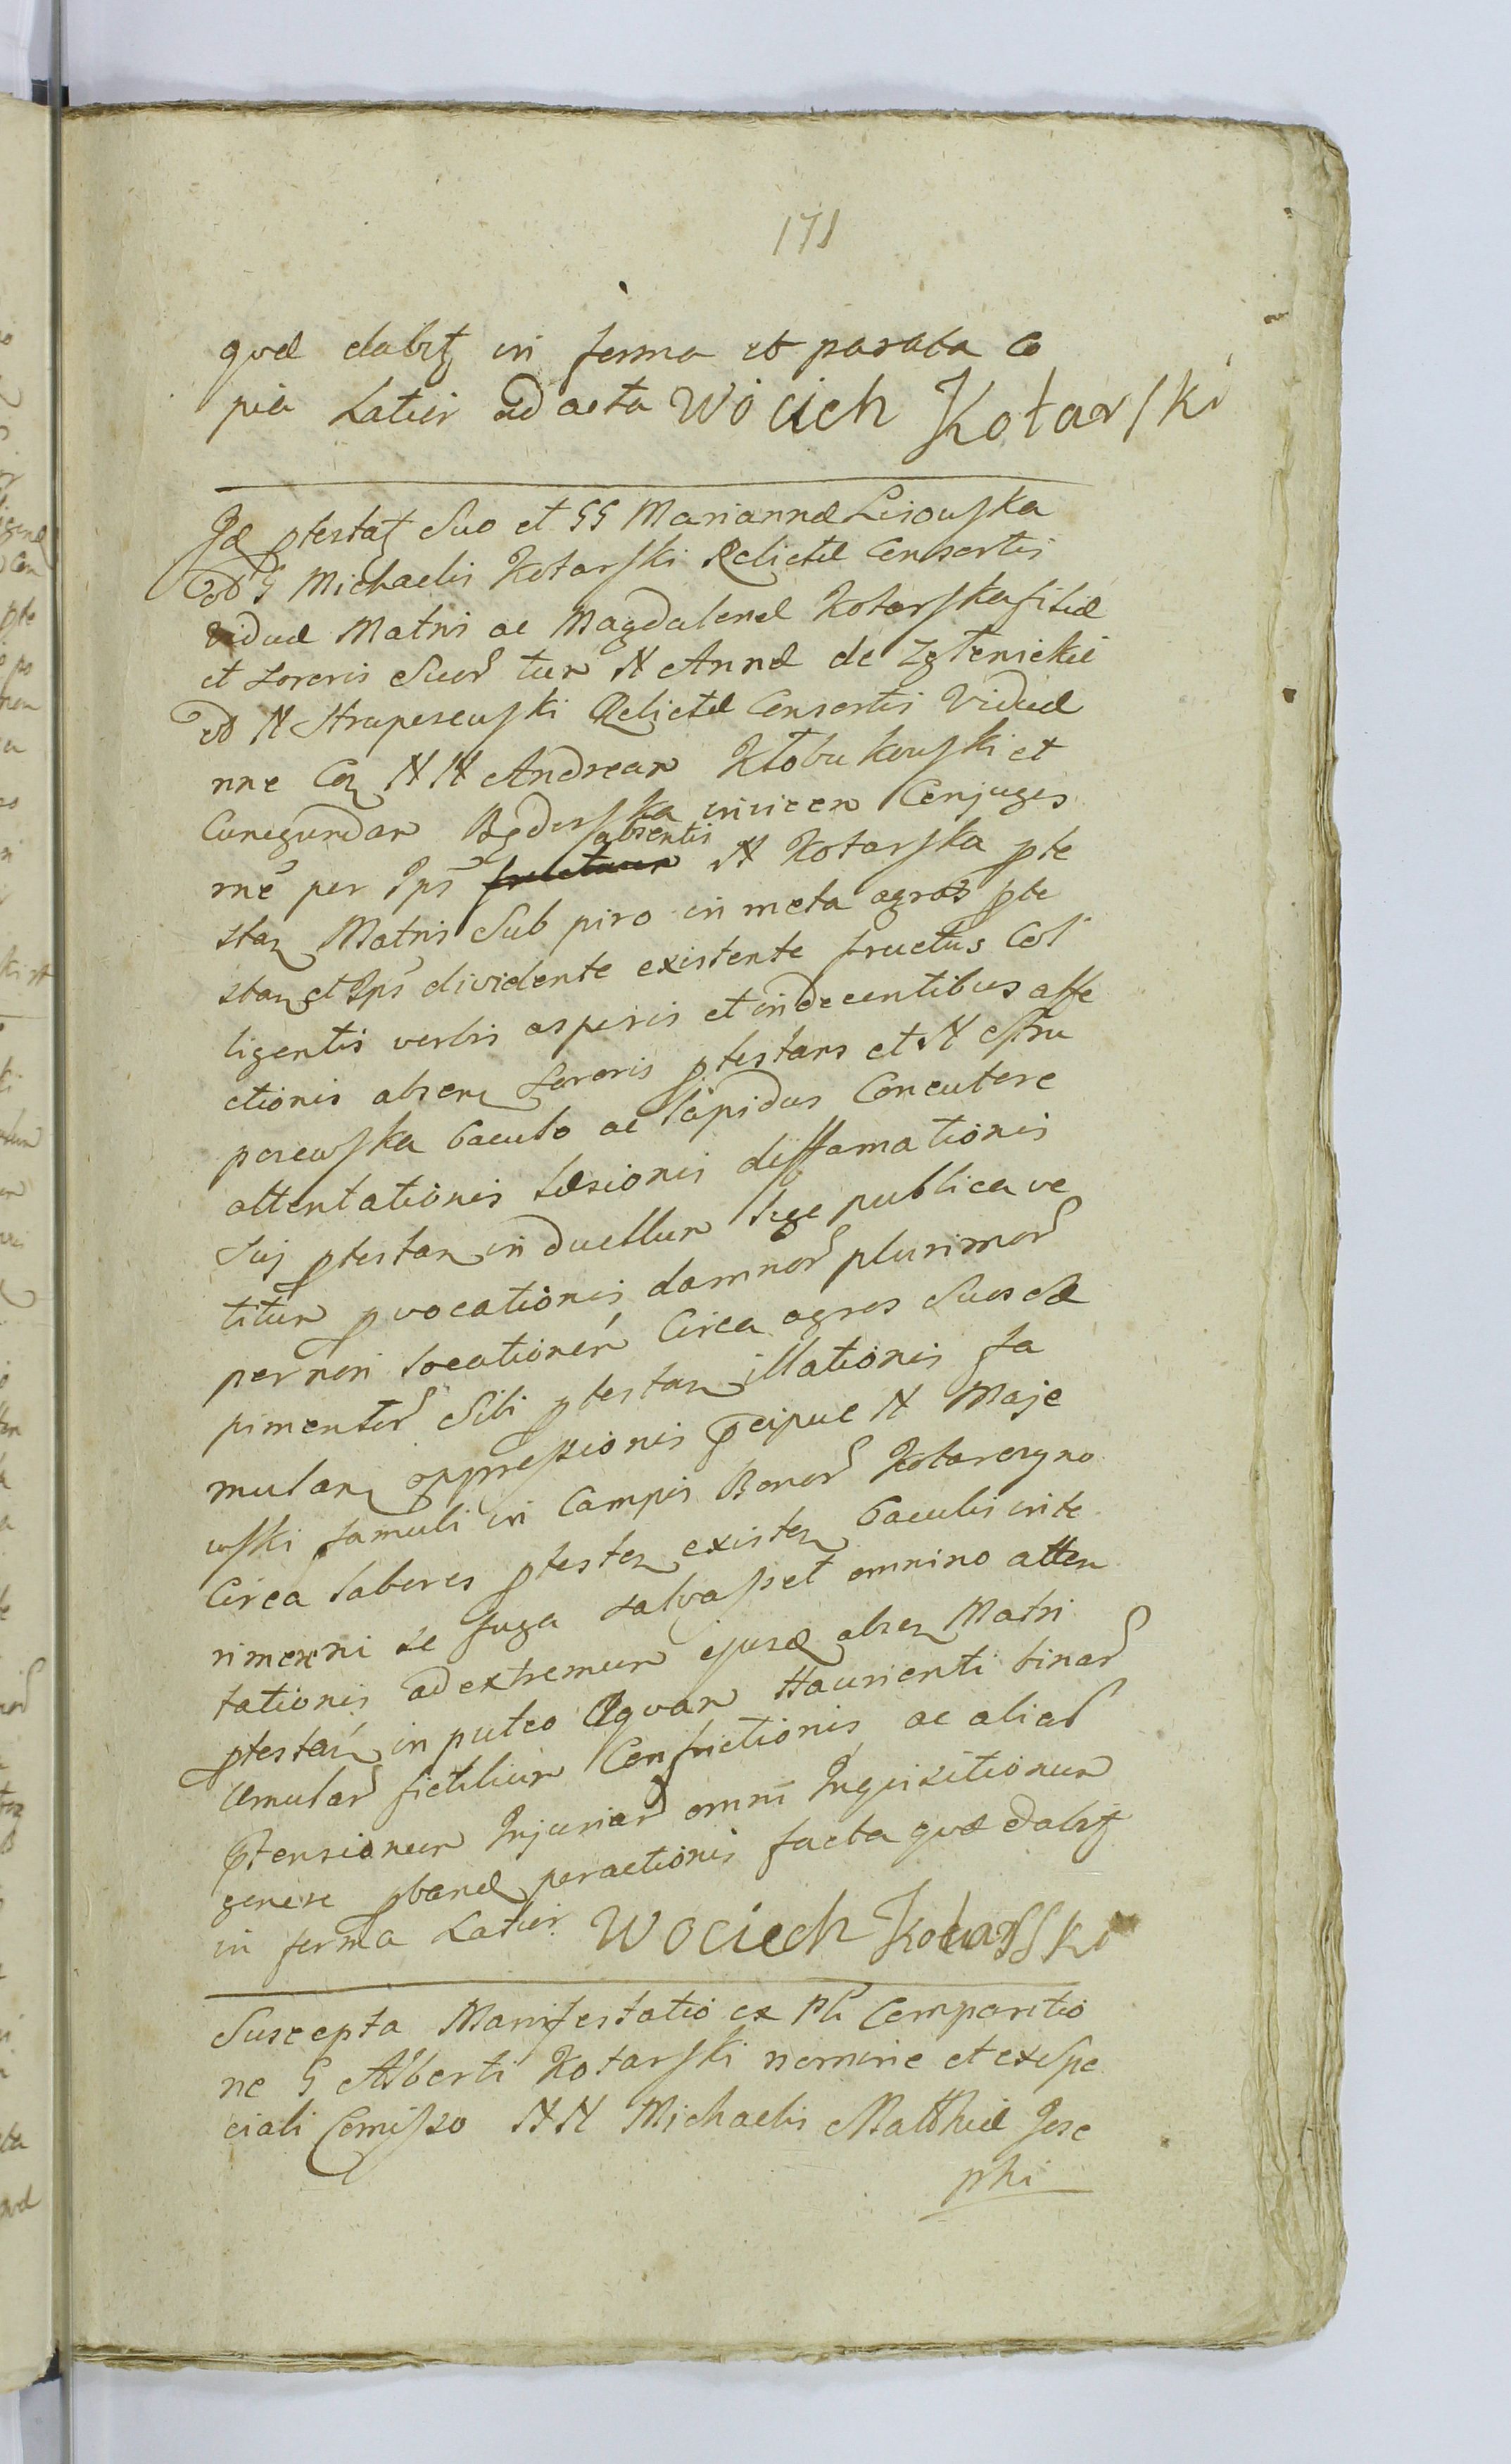 171
quæ dabitz in forma et parata Co
pia Latior ad acta Wociech Kotarski
Id ptestatz Suo et GG Mariannæ Lisowska
od G Michaelis Kotarski Relictæ Consortis
Viduæ Matris ac Magdalenæ Kotarska filiæ
et Sororis Suor tum N Annæ de
od N Relictæ Consortis Viduæ
nne Con N N Andream Kłobukowski et
Cunegundam invicem Conjuges
absentis
me per Ips N Kotarska pte
stan Matris Sub piro in meta agros pte
stan et Ips dividente existente fructus Col
ligentis verbis asperis et indecentibus affe
ctionis absen Sororis ptestans et N Stru
posewska baculo ac lapidus Concutere
attentationis læsionis diffamationis
Suj ptestan in duellum lege publica ve
titum pvocationis damnor plurimor
per non locationem Circa agros Suos Sæ
pimentor Sibi ptestan illationis fa
mulan oppressionis pcipue N Maje
wski famuli in Campis Bonor
Circa labores ptesten existen baculis inte
rimere ni se fuga salvasset omnino atten
tationis ad extremum ejusd absen Matri
ptestan in puteo Aquam Haurienti binar
fictilium Confrictionis ac aliar
Ptensionum Injuriar omni Inquisitionum
genere pband peractionis facta quæ dabitz
in forma Latior. Wociech Kotarsski
Suscepta Manifestatio ex Pli Comparitio
ne G Alberti Kotarski nomine et ex Spe
ciali Comisso N N Michaelis Matthiæ Jose
phi